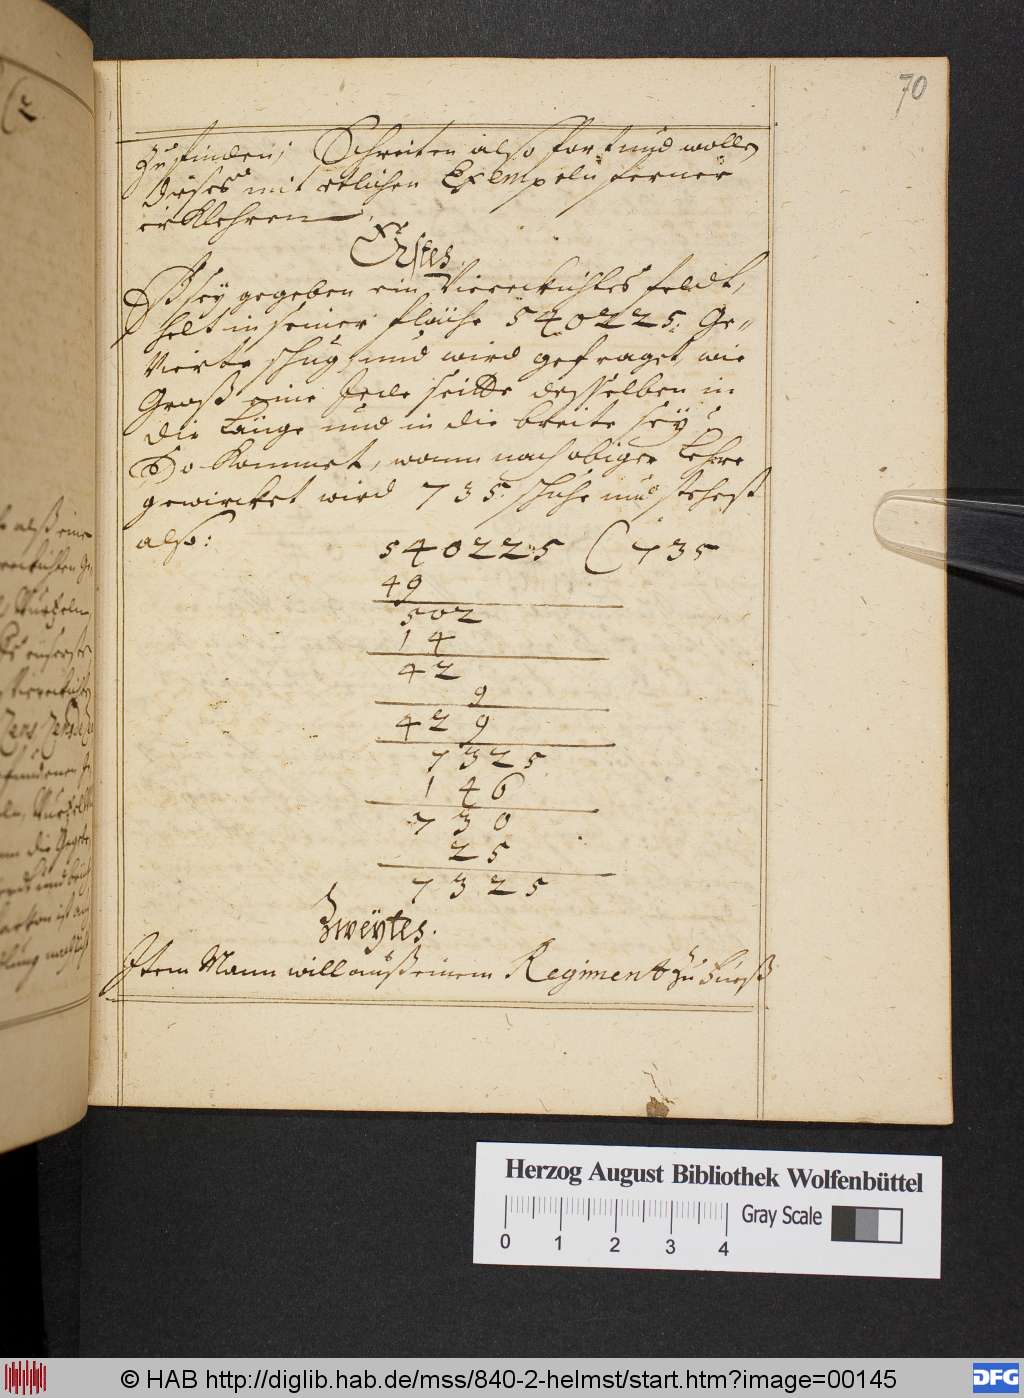 70
Zu finden; Schreiten also fort und wollen
dieses mit etlichen Exempeln ferner
erklehren.
Erstes.
Es sey gegeben ein Viereckichtes feldt,
helt in seiner fläche 540225: Ge-
Vierte schug, und wird gefraget, wie
Groß eine Jede seitte desselben in
die Länge und in die breite seÿ?
So kommet, wann nach obiger Lehre
gewircket wird 735. schuhe und stehest
also:
540225 (735
49
502
14
42
9
429
7325
146
730
25
7325
Zweÿtes.
Item Mann will auß einem Regiment zu Fueß
Herzog August Bibliothek Wolfenbüttel
Gray Scale
0 1 2 3 4
© HAB http://diglib.hab.de/mss/840-2-helmst/start.htm?image=00145
DFG